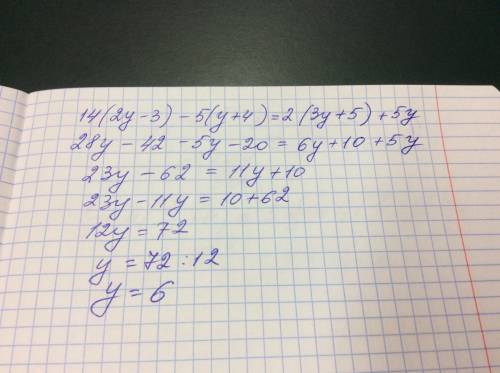 14(2y-3)-5(y+4)=2(3y+5)+5y
28y-42-5y-20=6y+10+5y
23y-62=11y+10
23y-11y=10+62
12y=72
y=72:12
y=6